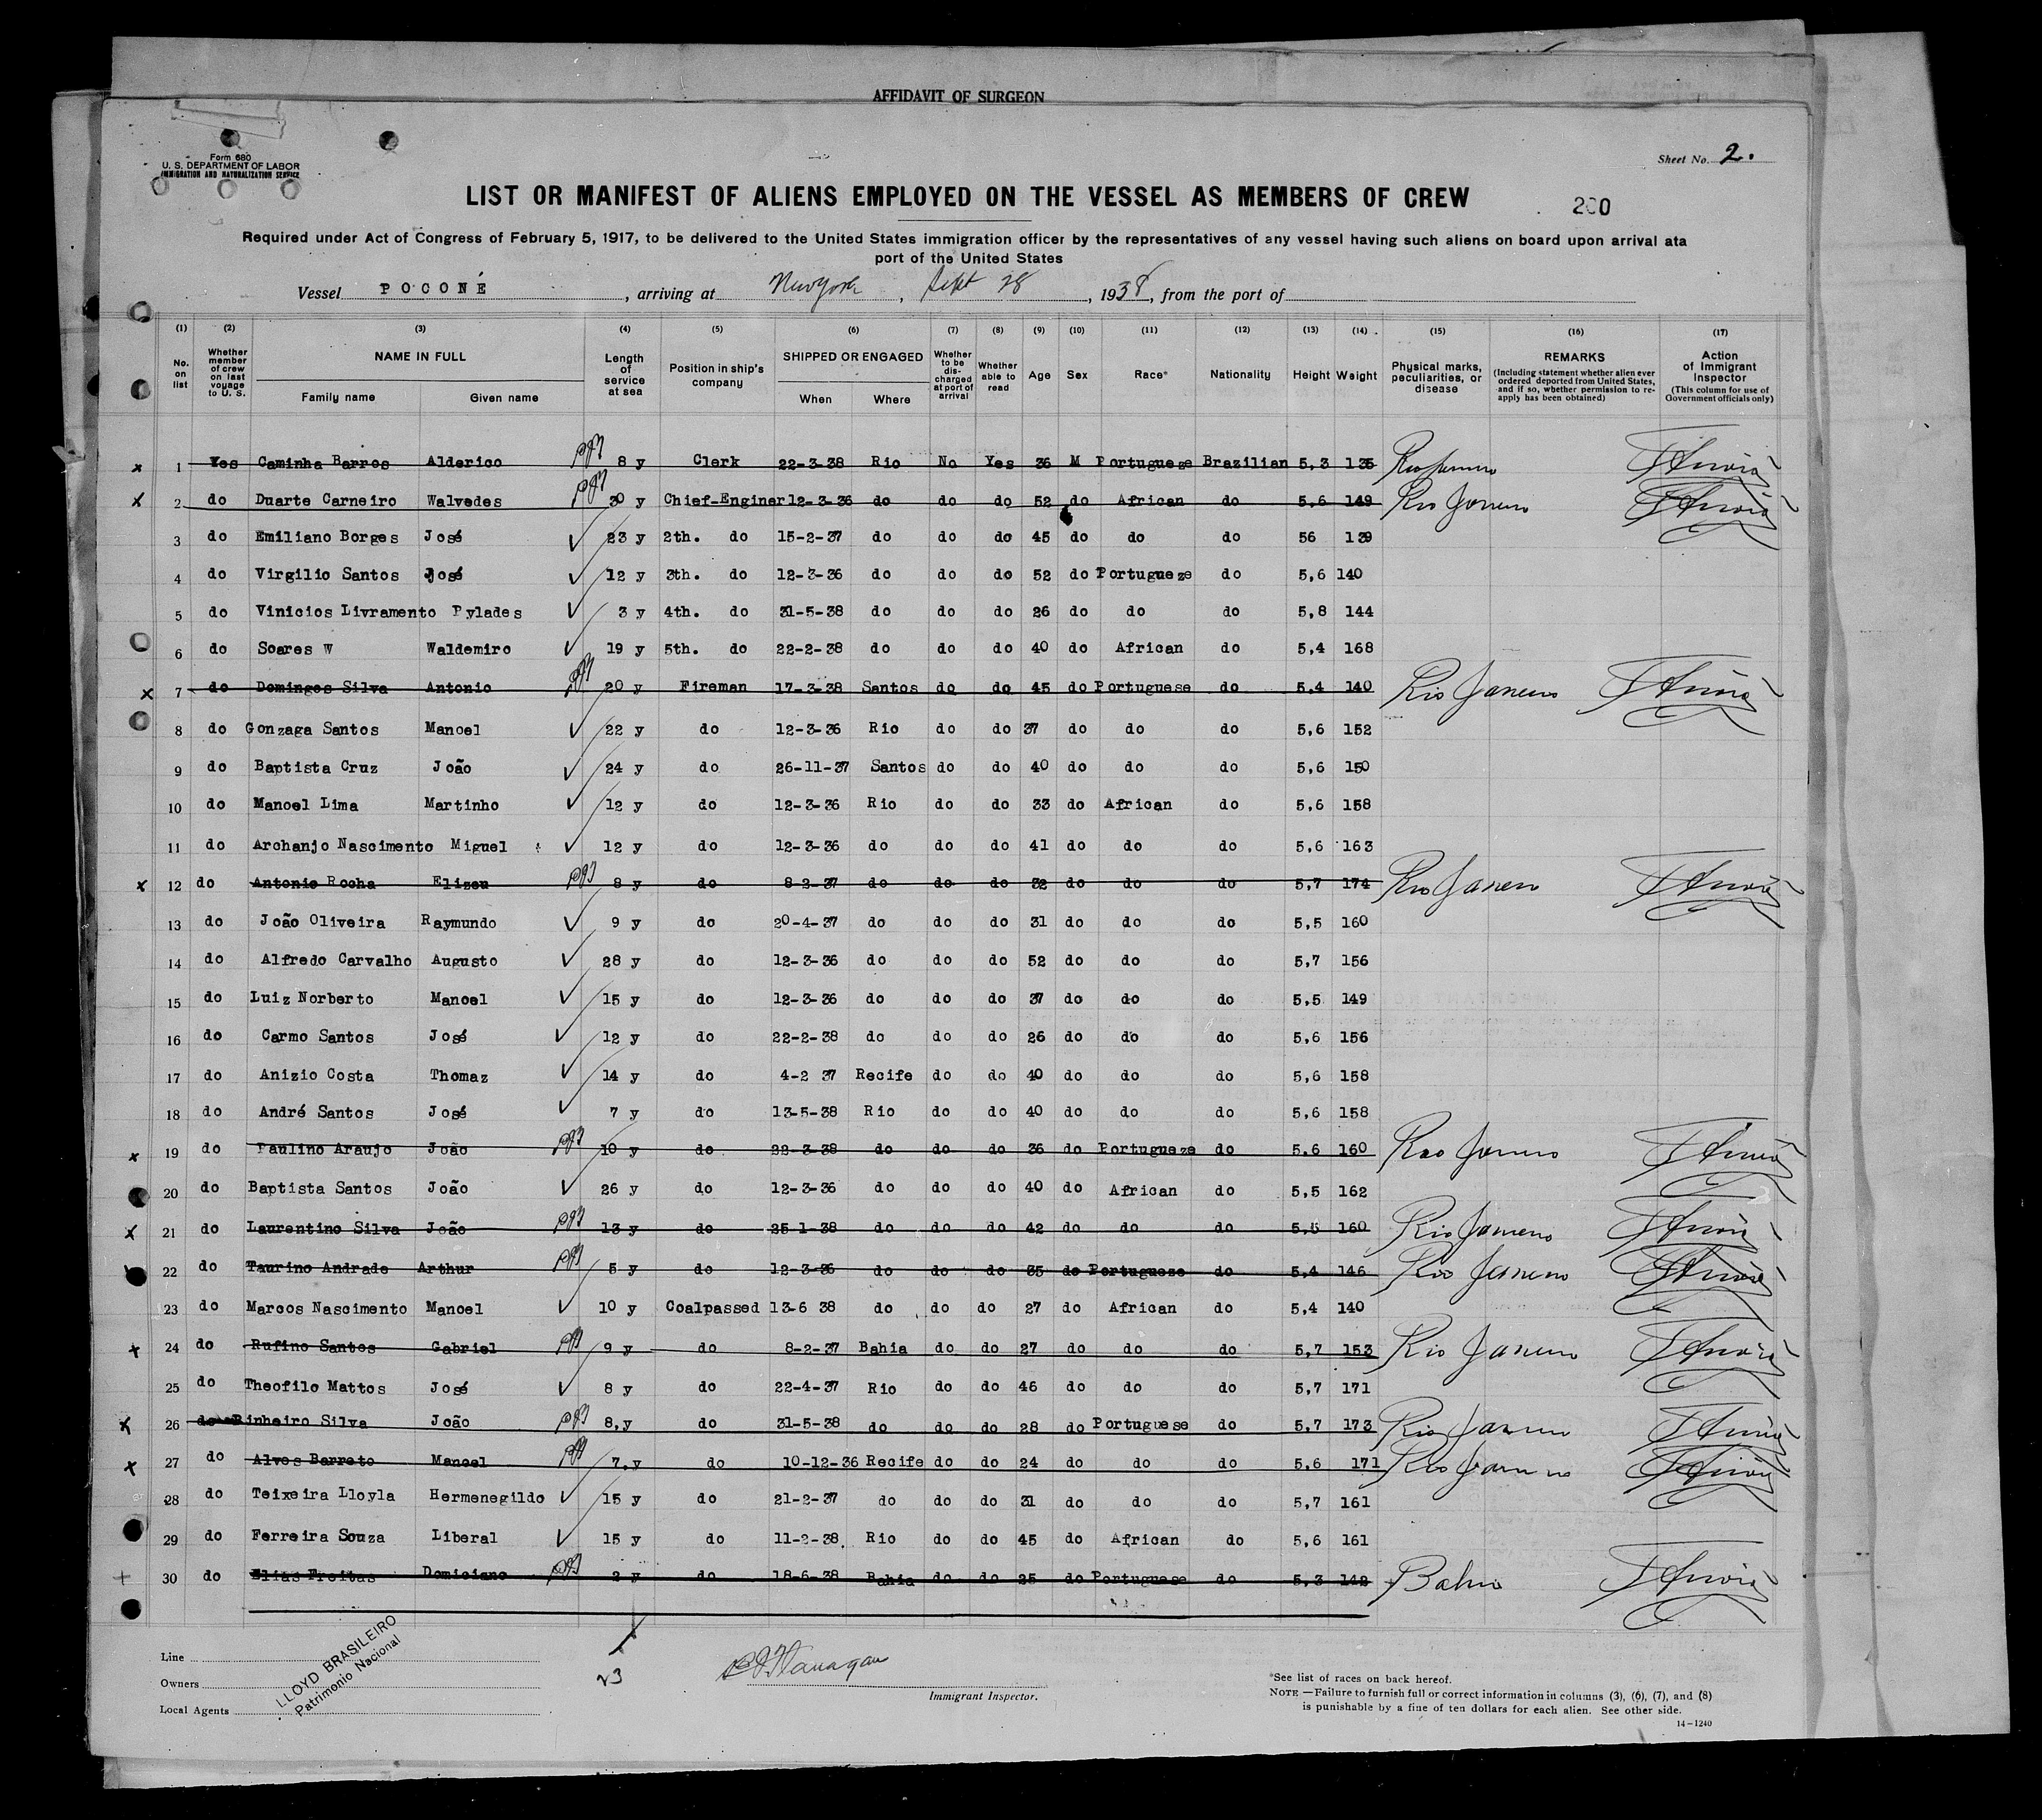 AFFIDAVIT OF SURGEON
Form 680
U. S. DEPARTMENT OF LABOR
IMMIGRATION AND NATURALIZATION SERVICE
Sheet No. 2.
LIST OR MANIFEST OF ALIENS EMPLOYED ON THE VESSEL AS MEMBERS OF CREW
200
Required under Act of Congress of February 5, 1917, to be delivered to the United States immigration officer by the representatives of any vessel having such aliens on board upon arrival ata
port of the United States
Vessel POCONÉ, arriving at New York, Sept 28, 1938, from the port of
(1) (2) (3) (4) (5) (6) (7) (8) (9) (10) (11) (12) (13) (14) (15) (16) (17)
No. on list Whether member of crew on last voyage to U. S. NAME IN FULL Family name Given name Length of service at sea Position in ship's company SHIPPED OR ENGAGED When Where Whether to be discharged at port of arrival Whether able to read Age Sex Race* Nationality Height Weight Physical marks, peculiarities, or disease REMARKS (Including statement whether alien ever ordered deported from United States, and if so, whether permission to reapply has been obtained) Action of Immigrant Inspector (This column for use of Government officials only)
x 1 Yes Caminha Barros Alderico 8 y Clerk 22-3-38 Rio No Yes 36 M Portugueze Brazilian 5,3 135 Rio Janeiro
x 2 do Duarte Carneiro Walvedes 30 y Chief-Enginer 12-3-36 do do do 52 do African do 5,6 149 Rio Janeiro
3 do Emiliano Borges José 23 y 2th. do 15-2-37 do do do 45 do do do 56 139
4 do Virgilio Santos José 12 y 3th. do 12-3-36 do do do 52 do Portugueze do 5,6 140
5 do Vinicios Livramento Pylades 3 y 4th. do 31-5-38 do do do 26 do do do 5,8 144
6 do Soares W Waldemiro 19 y 5th. do 22-2-38 do do do 40 do African do 5,4 168
x 7 do Domingos Silva Antonio 20 y Fireman 17-3-38 Santos do do 45 do Portuguese do 5,4 140 Rio Janeiro
8 do Gonzaga Santos Manoel 22 y do 12-3-36 Rio do do 37 do do do 5,6 152
9 do Baptista Cruz João 24 y do 26-11-37 Santos do do 40 do do do 5,6 150
10 do Manoel Lima Martinho 12 y do 12-3-36 Rio do do 33 do African do 5,6 158
11 do Archanjo Nascimento Miguel 12 y do 12-3-36 do do do 41 do do do 5,6 163
x 12 do Antonio Rocha Elizeu 8 y do 8-2-37 do do do 32 do do do 5,7 174 Rio Janeiro
13 do João Oliveira Raymundo 9 y do 20-4-37 do do do 31 do do do 5,5 160
14 do Alfredo Carvalho Augusto 28 y do 12-3-36 do do do 52 do do do 5,7 156
15 do Luiz Norberto Manoel 15 y do 12-3-36 do do do 37 do do do 5,5 149
16 do Carmo Santos José 12 y do 22-2-38 do do do 26 do do do 5,6 156
17 do Anizio Costa Thomaz 14 y do 4-2 37 Recife do do 40 do do do 5,6 158
18 do André Santos José 7 y do 13-5-38 Rio do do 40 do do do 5,6 158
x 19 do Paulino Araujo João 10 y do 22-3-38 do do do 36 do Portugueze do 5,6 160 Rio Janeiro
20 do Baptista Santos João 26 y do 12-3-36 do do do 40 do African do 5,5 162
x 21 do Laurentino Silva João 13 y do 25-1-38 do do do 42 do do do 5,5 160 Rio Janeiro
22 do Taurino Andrade Arthur 5 y do 12-3-36 do do do 35 do Portugueze do 5,4 146 Rio Janeiro
23 do Marcos Nascimento Manoel 10 y Coalpassed 13-6 38 do do do 27 do African do 5,4 140
x 24 do Rufino Santos Gabriel 9 y do 8-2-37 Bahia do do 27 do do do 5,7 153 Rio Janeiro
25 do Theofilo Mattos José 8 y do 22-4-37 Rio do do 46 do do do 5,7 171
x 26 do Pinheiro Silva João 8,y do 31-5-38 do do do 28 do Portuguese do 5,7 173 Rio Janeiro
x 27 do Alves Barreto Manoel 7,y do 10-12-36 Recife do do 24 do do do 5,6 171 Rio Janeiro
28 do Teixeira Lloyla Hermenegildo 15 y do 21-2-37 do do do 31 do do do 5,7 161
29 do Ferreira Souza Liberal 15 y do 11-2-38 Rio do do 45 do African do 5,6 161
+ 30 do Elias Freitas Domiciano 2 y do 18-6-38 Bahia do do 25 do Portuguese do 5,3 142 Bahia
Line
Owners
Local Agents
LLOYD BRASILEIRO
Patrimonio Nacional
23
Flanagan
Immigrant Inspector.
*See list of races on back hereof.
NOTE—Failure to furnish full or correct information in columns (3), (6), (7), and (8)
is punishable by a fine of ten dollars for each alien. See other side.
14-1240